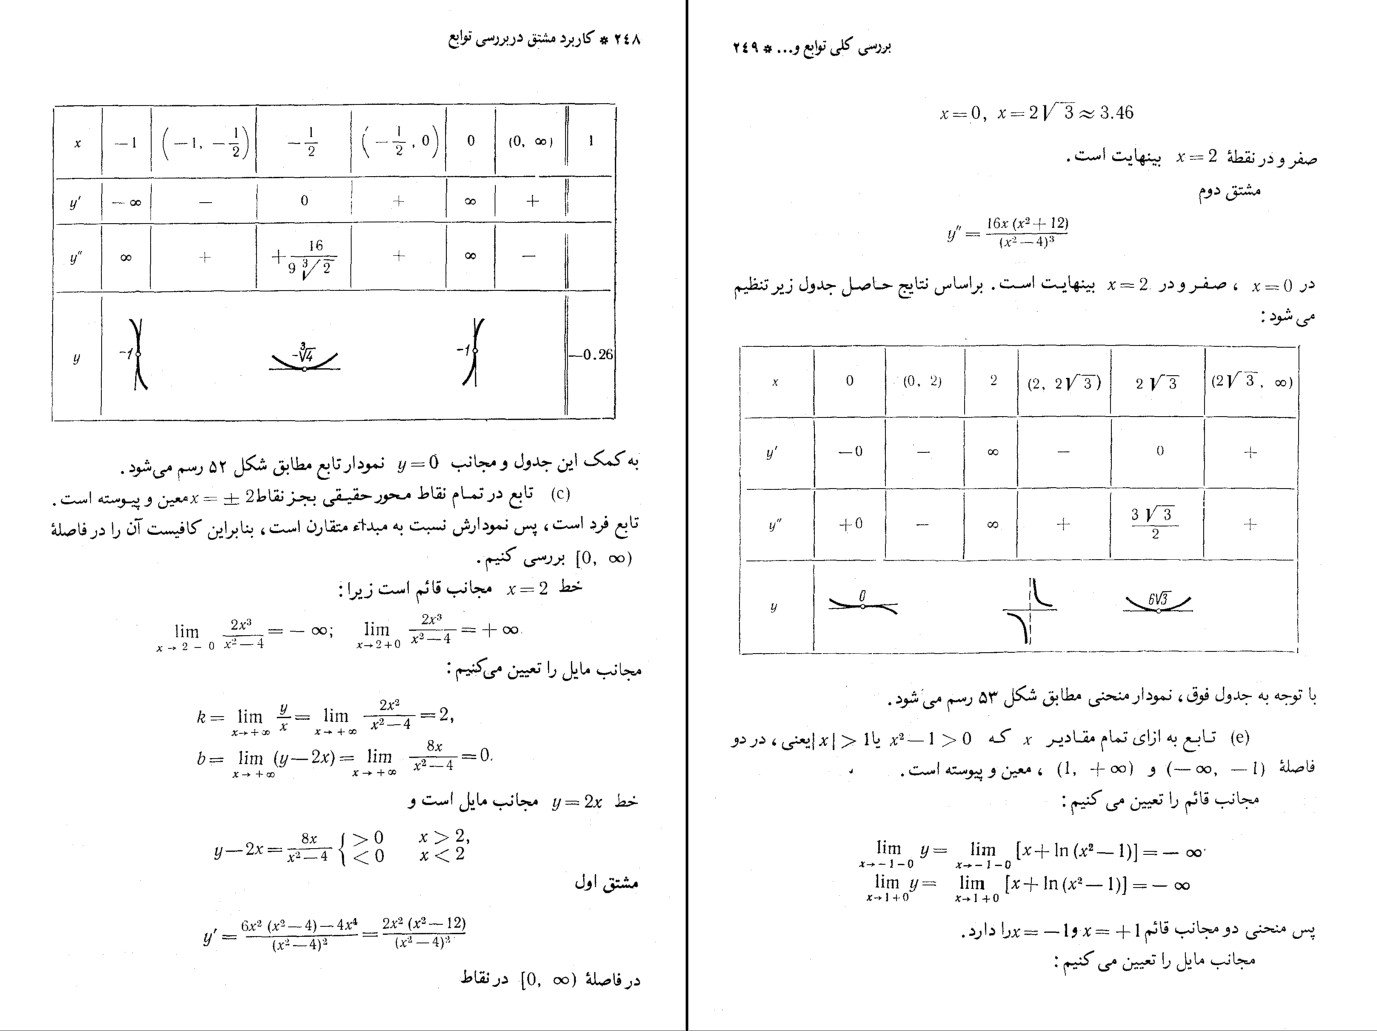 ۲۴۸ * کاربرد مشتق در بررسی توابع
x −1 (−1, −1/2) −1/2 (−1/2, 0) 0 (0, ∞) 1
y′ −∞ − 0 + ∞ +
y″ ∞ + +16/(9∛2) + ∞ −
y −1 −∛4 −1 −0.26
به کمک این جدول و مجانب y=0 نمودار تابع مطابق شکل ۵۲ رسم می‌شود.
(c) تابع در تمام نقاط محور حقیقی بجز نقاط x = ± 2 معین و پیوسته است.
تابع فرد است، پس نمودارش نسبت به مبداء متقارن است، بنابراین کافیست آن را در فاصلهٔ
[0, ∞) بررسی کنیم.
خط x=2 مجانب قائم است زیرا:
lim x→2−0 2x³/(x²−4) = −∞; lim x→2+0 2x³/(x²−4) = +∞
مجانب مایل را تعیین می‌کنیم:
k = lim x→+∞ y/x = lim x→+∞ 2x²/(x²−4) = 2,
b = lim x→+∞ (y−2x) = lim x→+∞ 8x/(x²−4) = 0.
خط y=2x مجانب مایل است و
y−2x = 8x/(x²−4) { >0 x>2,
<0 x<2
مشتق اول
y′ = (6x²(x²−4)−4x⁴)/(x²−4)² = 2x²(x²−12)/(x²−4)²
در فاصلهٔ [0, ∞) در نقاط
بررسی کلی توابع و... * ۲۴۹
x=0, x=2√3≈3.46
صفر و در نقطهٔ x=2 بینهایت است.
مشتق دوم
y″ = 16x(x²+12)/(x²−4)³
در x=0 ، صفر و در x=2 بینهایت است. براساس نتایج حاصل جدول زیر تنظیم
می شود:
x 0 (0, 2) 2 (2, 2√3) 2√3 (2√3, ∞)
y′ −0 − ∞ − 0 +
y″ +0 − ∞ + 3√3/2 +
y 0 6√3
با توجه به جدول فوق، نمودار منحنی مطابق شکل ۵۳ رسم می شود.
(e) تابع به ازای تمام مقادیر x که x²−1>0 یا |x|>1 یعنی، در دو
فاصلهٔ (−∞, −1) و (1, +∞) ، معین و پیوسته است.
مجانب قائم را تعیین می کنیم:
lim x→−1−0 y = lim x→−1−0 [x+ln(x²−1)] = −∞
lim x→1+0 y = lim x→1+0 [x+ln(x²−1)] = −∞
پس منحنی دو مجانب قائم x=+1 و x=−1 را دارد.
مجانب مایل را تعیین می کنیم: